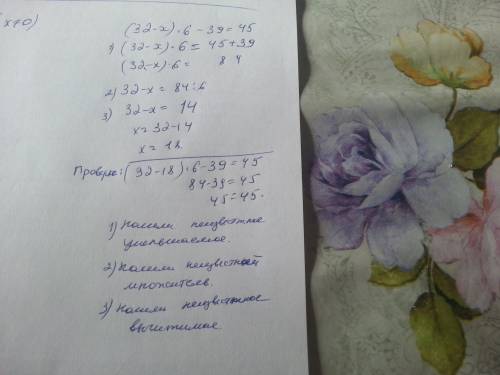 х≠0)
(32-х)·6-39=45
1) (32-х)·6=45+39
(32-х)·6= 84
2) 32-х=84:6
3) 32-х=14
х=32-14
х=18
Проверка: (32-18)·6-39=45
84-39=45
45=45.
1) Нашли неизвестное
уменьшаемое.
2) Нашли неизвестный
множитель.
3) Нашли неизвестное
вычитаемое